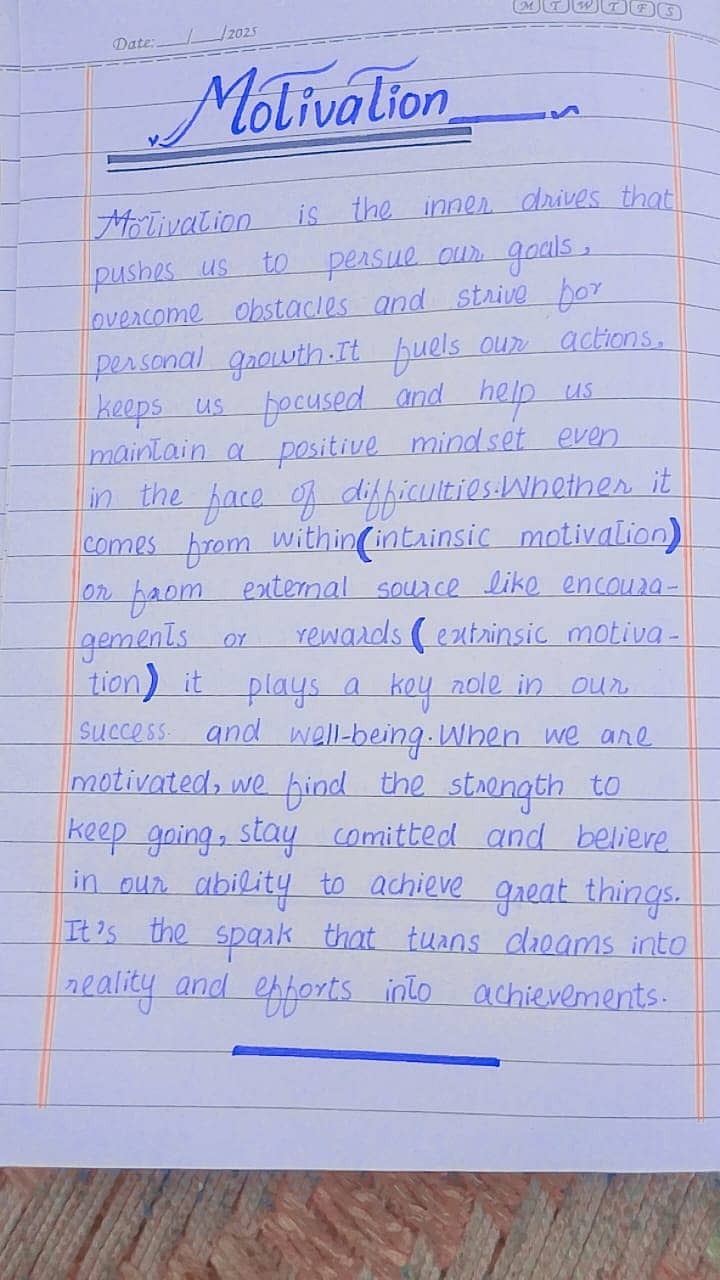 M T W T F S
Date: __/__/2025
Motivation
Motivation is the inner drives that
pushes us to persue our goals,
overcome obstacles and strive for
personal growth. It fuels our actions,
keeps us focused and help us
maintain a positive mindset even
in the face of difficulties. Whether it
comes from within (intrinsic motivation)
or from external source like encoura-
gements or rewards (extrinsic motiva-
tion) it plays a key role in our
success and well-being. When we are
motivated, we find the strength to
keep going, stay comitted and believe
in our ability to achieve great things.
It's the spark that turns dreams into
reality and efforts into achievements.